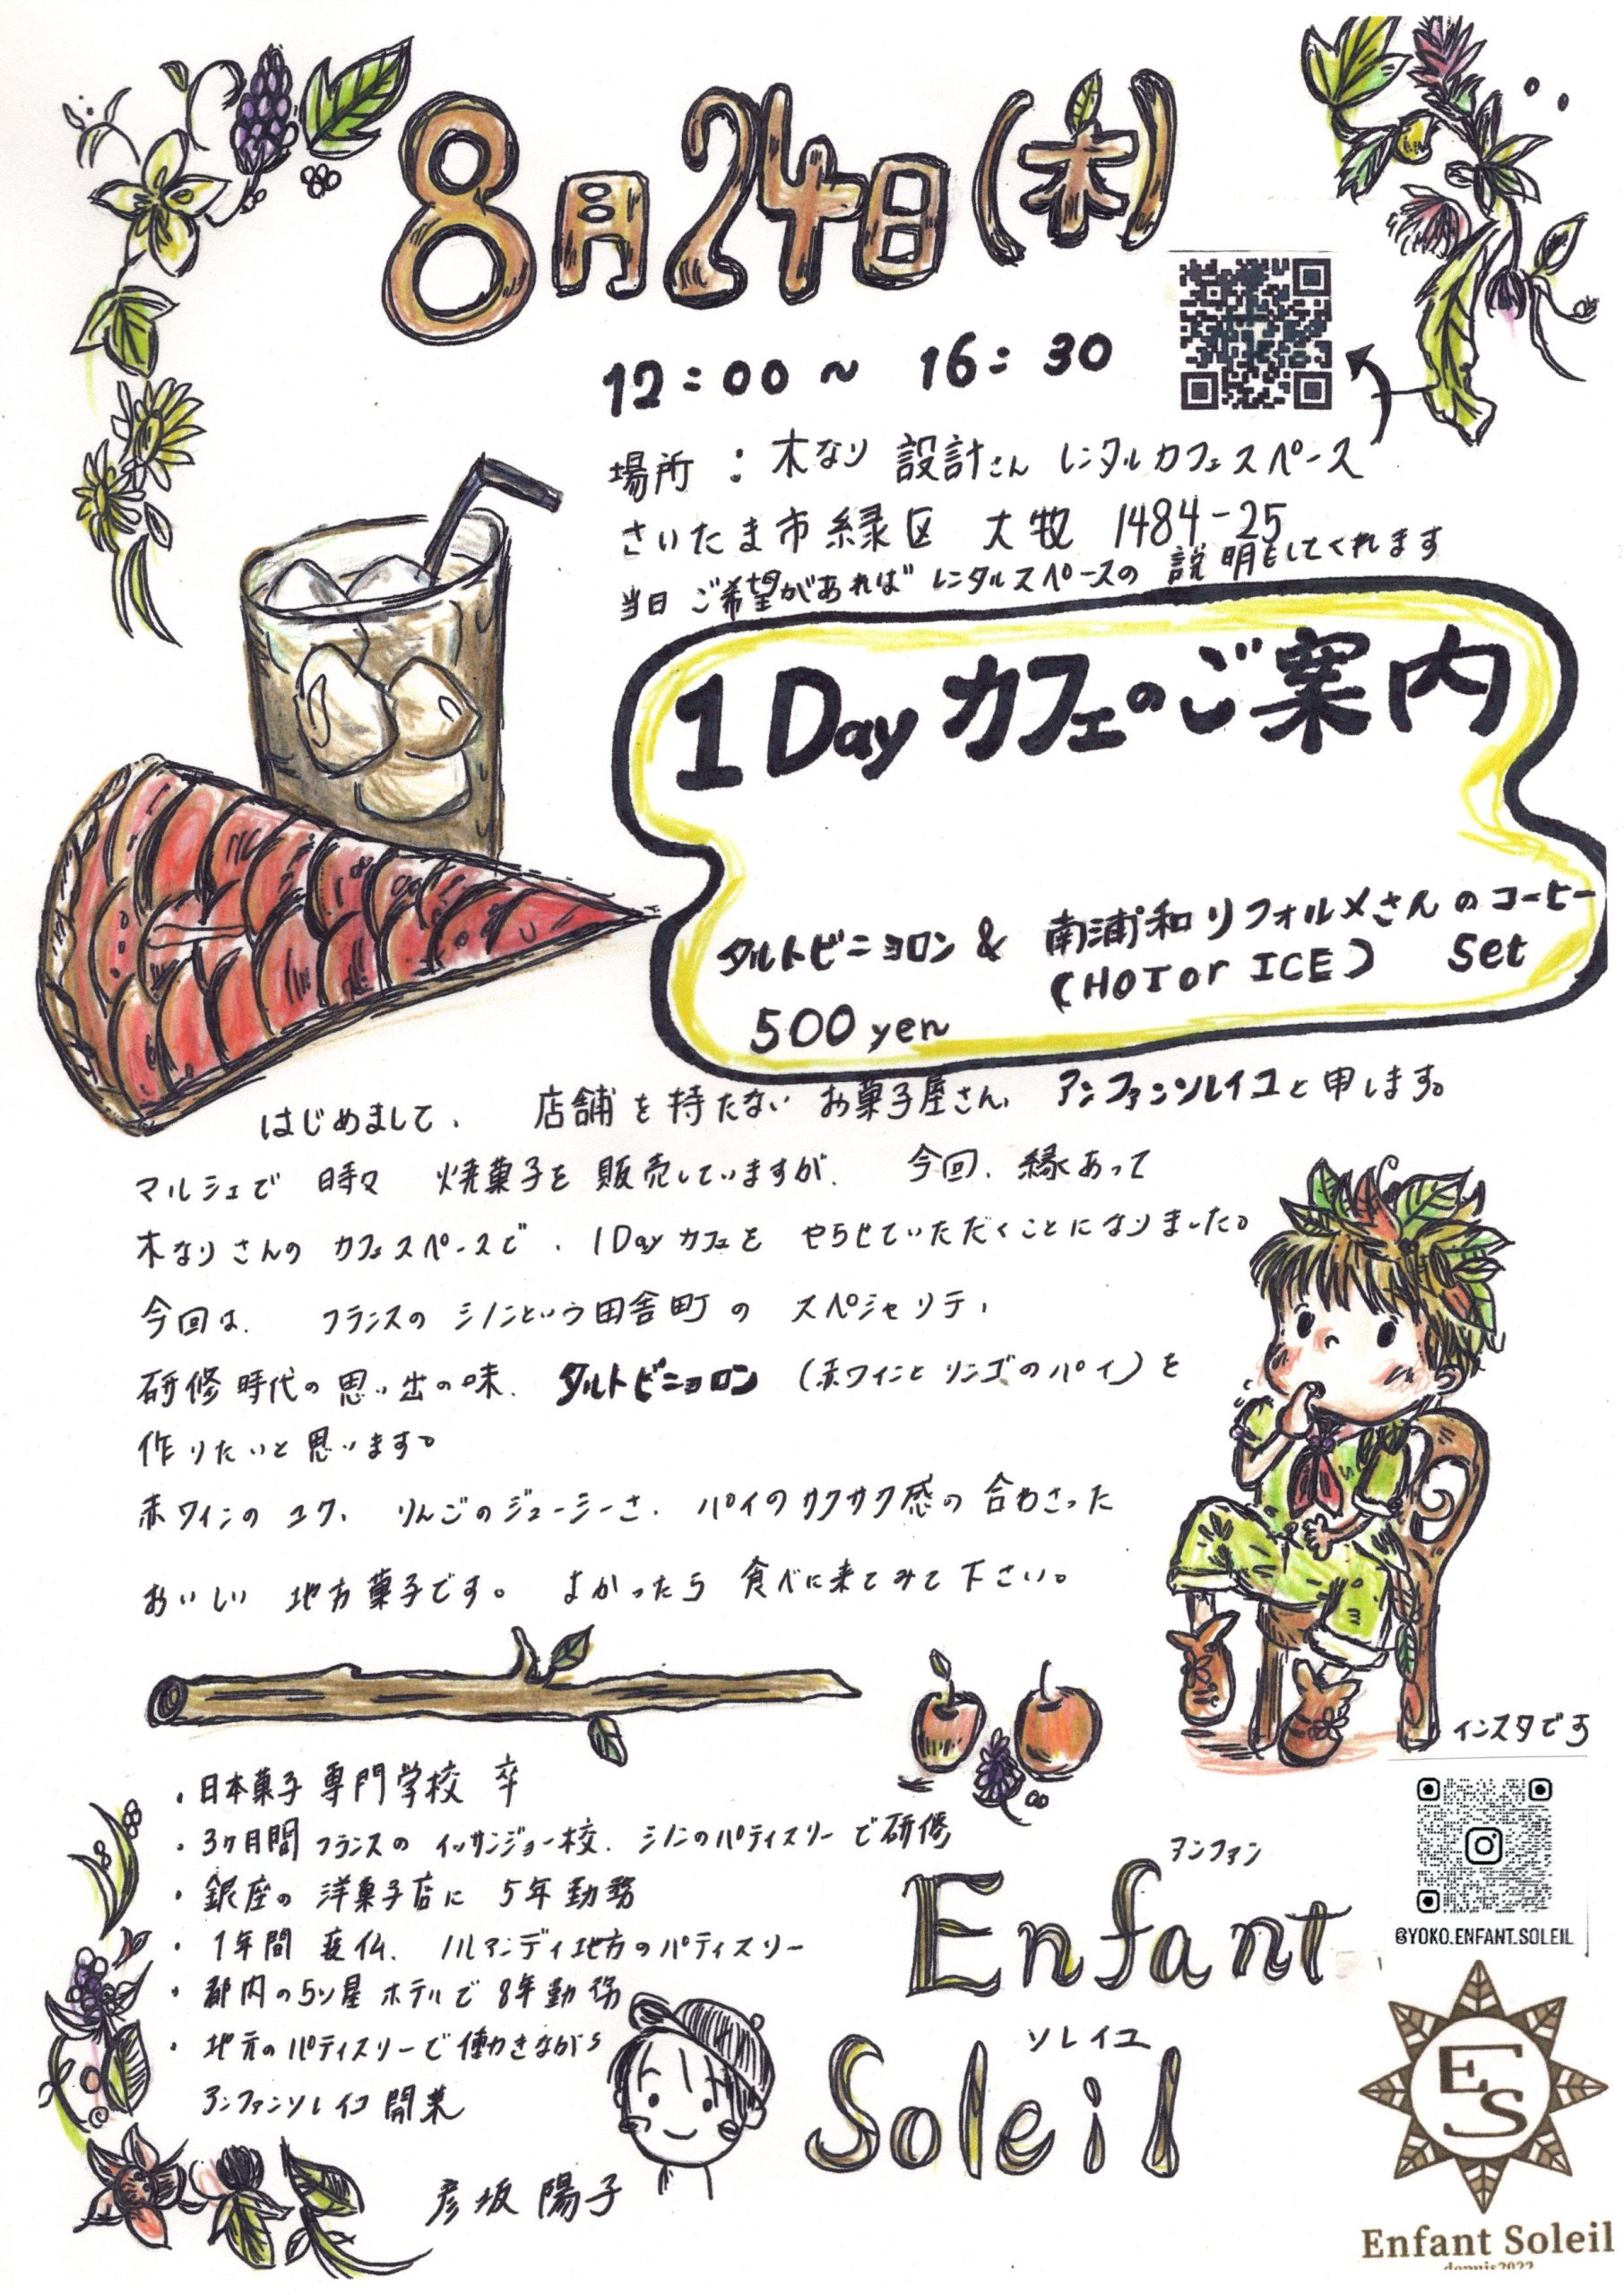 8月24日(木)
12:00～16:30
場所：木なり設計さん レンタルカフェスペース
さいたま市緑区 大牧 1484-25
当日ご希望があれば レンタルスペースの 説明もしてくれます
1Dayカフェのご案内
タルトビニョロン & 南浦和リフォルメさんのコーヒー
(HOTorICE) Set
500yen
はじめまして、店舗を持たないお菓子屋さん、アンファンソレイユと申します。
マルシェで 時々 焼菓子を 販売していますが、今回、縁あって
木なりさんの カフェスペースで、1Dayカフェを やらせていただくことになりました。
今回は、フランスの シノンという田舎町の スペシャリテ、
研修時代の思い出の味、タルトビニョロン (赤ワインとリンゴのパイ)を
作りたいと思います。
赤ワインの コク、りんごのジューシーさ、パイのサクサク感の 合わさった
おいしい 地方菓子です。よかったら 食べに来てみて下さい。
インスタです
・日本菓子専門学校 卒
・3ヶ月間フランスの イッサンジョー校、シノンのパティスリーで研修
・銀座の 洋菓子店に 5年勤務
・1年間 渡仏、ノルマンディ地方のパティスリー
・都内の5ツ星ホテルで 8年勤務
・地元のパティスリーで働きながら
アンファンソレイユ開業
彦坂 陽子
アンファン
Enfant
ソレイユ
Soleil
@YOKO.ENFANT.SOLEIL
ES
Enfant Soleil
depuis2022